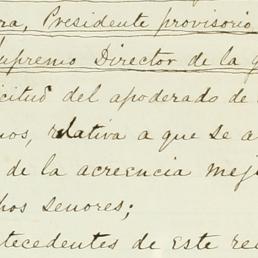 ra, Presidente provisorio
Supremo Director de la g
icitud del apoderado de
nos, relativa a que se a
de la acreencia mej
hos senores;
ntecedentes de este re